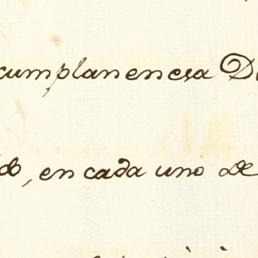 cumplanencsa D
do, en cada uno de